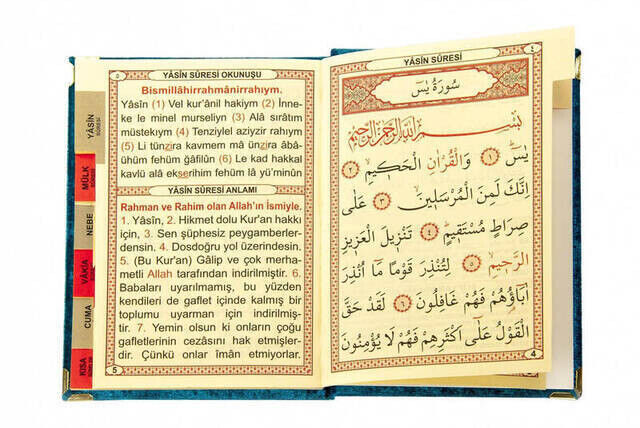 ٥
YÂSİN SÛRESİ OKUNUŞU
Bismillâhirrahmânirrahıym.
Yâsîn (1) Vel kur'ânil hakiym (2) İnne-
ke le minel murseliyn (3) Alâ sırâtım
müstekıym (4) Tenziylel aziyzir rahıym
(5) Li tünzira kavmem mâ ünzira âbâ-
ühüm fehüm ğâfilûn (6) Le kad hakkal
kavlü alâ ekserihim fehüm lâ yü'minûn
YÂSİN SÛRESİ ANLAMI
Rahman ve Rahim olan Allah'ın İsmiyle.
1. Yâsîn, 2. Hikmet dolu Kur'an hakkı
için, 3. Sen şüphesiz peygamberler-
densin. 4. Dosdoğru yol üzerindesin.
5. (Bu Kur'an) Gâlip ve çok merha-
metli Allah tarafından indirilmiştir. 6.
Babaları uyarılmamış, bu yüzden
kendileri de gaflet içinde kalmış bir
toplumu uyarman için indirilmiş-
tir. 7. Yemin olsun ki onların çoğu
gafletlerinin cezasını hak etmişler-
dir. Çünkü onlar îmân etmiyorlar.
5
YÂSİN
SÛRESİ
MÜLK
NEBE
VÂKIA
CUMA
KISA
YÂSİN SÛRESİ
٤
سُورَةُ يٰسٓ
بِسْمِ اللّٰهِ الرَّحْمٰنِ الرَّحِيمِ
يٰسٓ ﴿١﴾ وَالْقُرْاٰنِ الْحَكِيمِ ﴿٢﴾
اِنَّكَ لَمِنَ الْمُرْسَلِينَ ﴿٣﴾ عَلٰى
صِرَاطٍ مُسْتَقِيمٍ ﴿٤﴾ تَنْزِيلَ الْعَزِيزِ
الرَّحِيمِ ﴿٥﴾ لِتُنْذِرَ قَوْمًا مَٓا اُنْذِرَ
اٰبَٓاؤُهُمْ فَهُمْ غَافِلُونَ ﴿٦﴾ لَقَدْ حَقَّ
الْقَوْلُ عَلٰٓى اَكْثَرِهِمْ فَهُمْ لَا يُؤْمِنُونَ
4